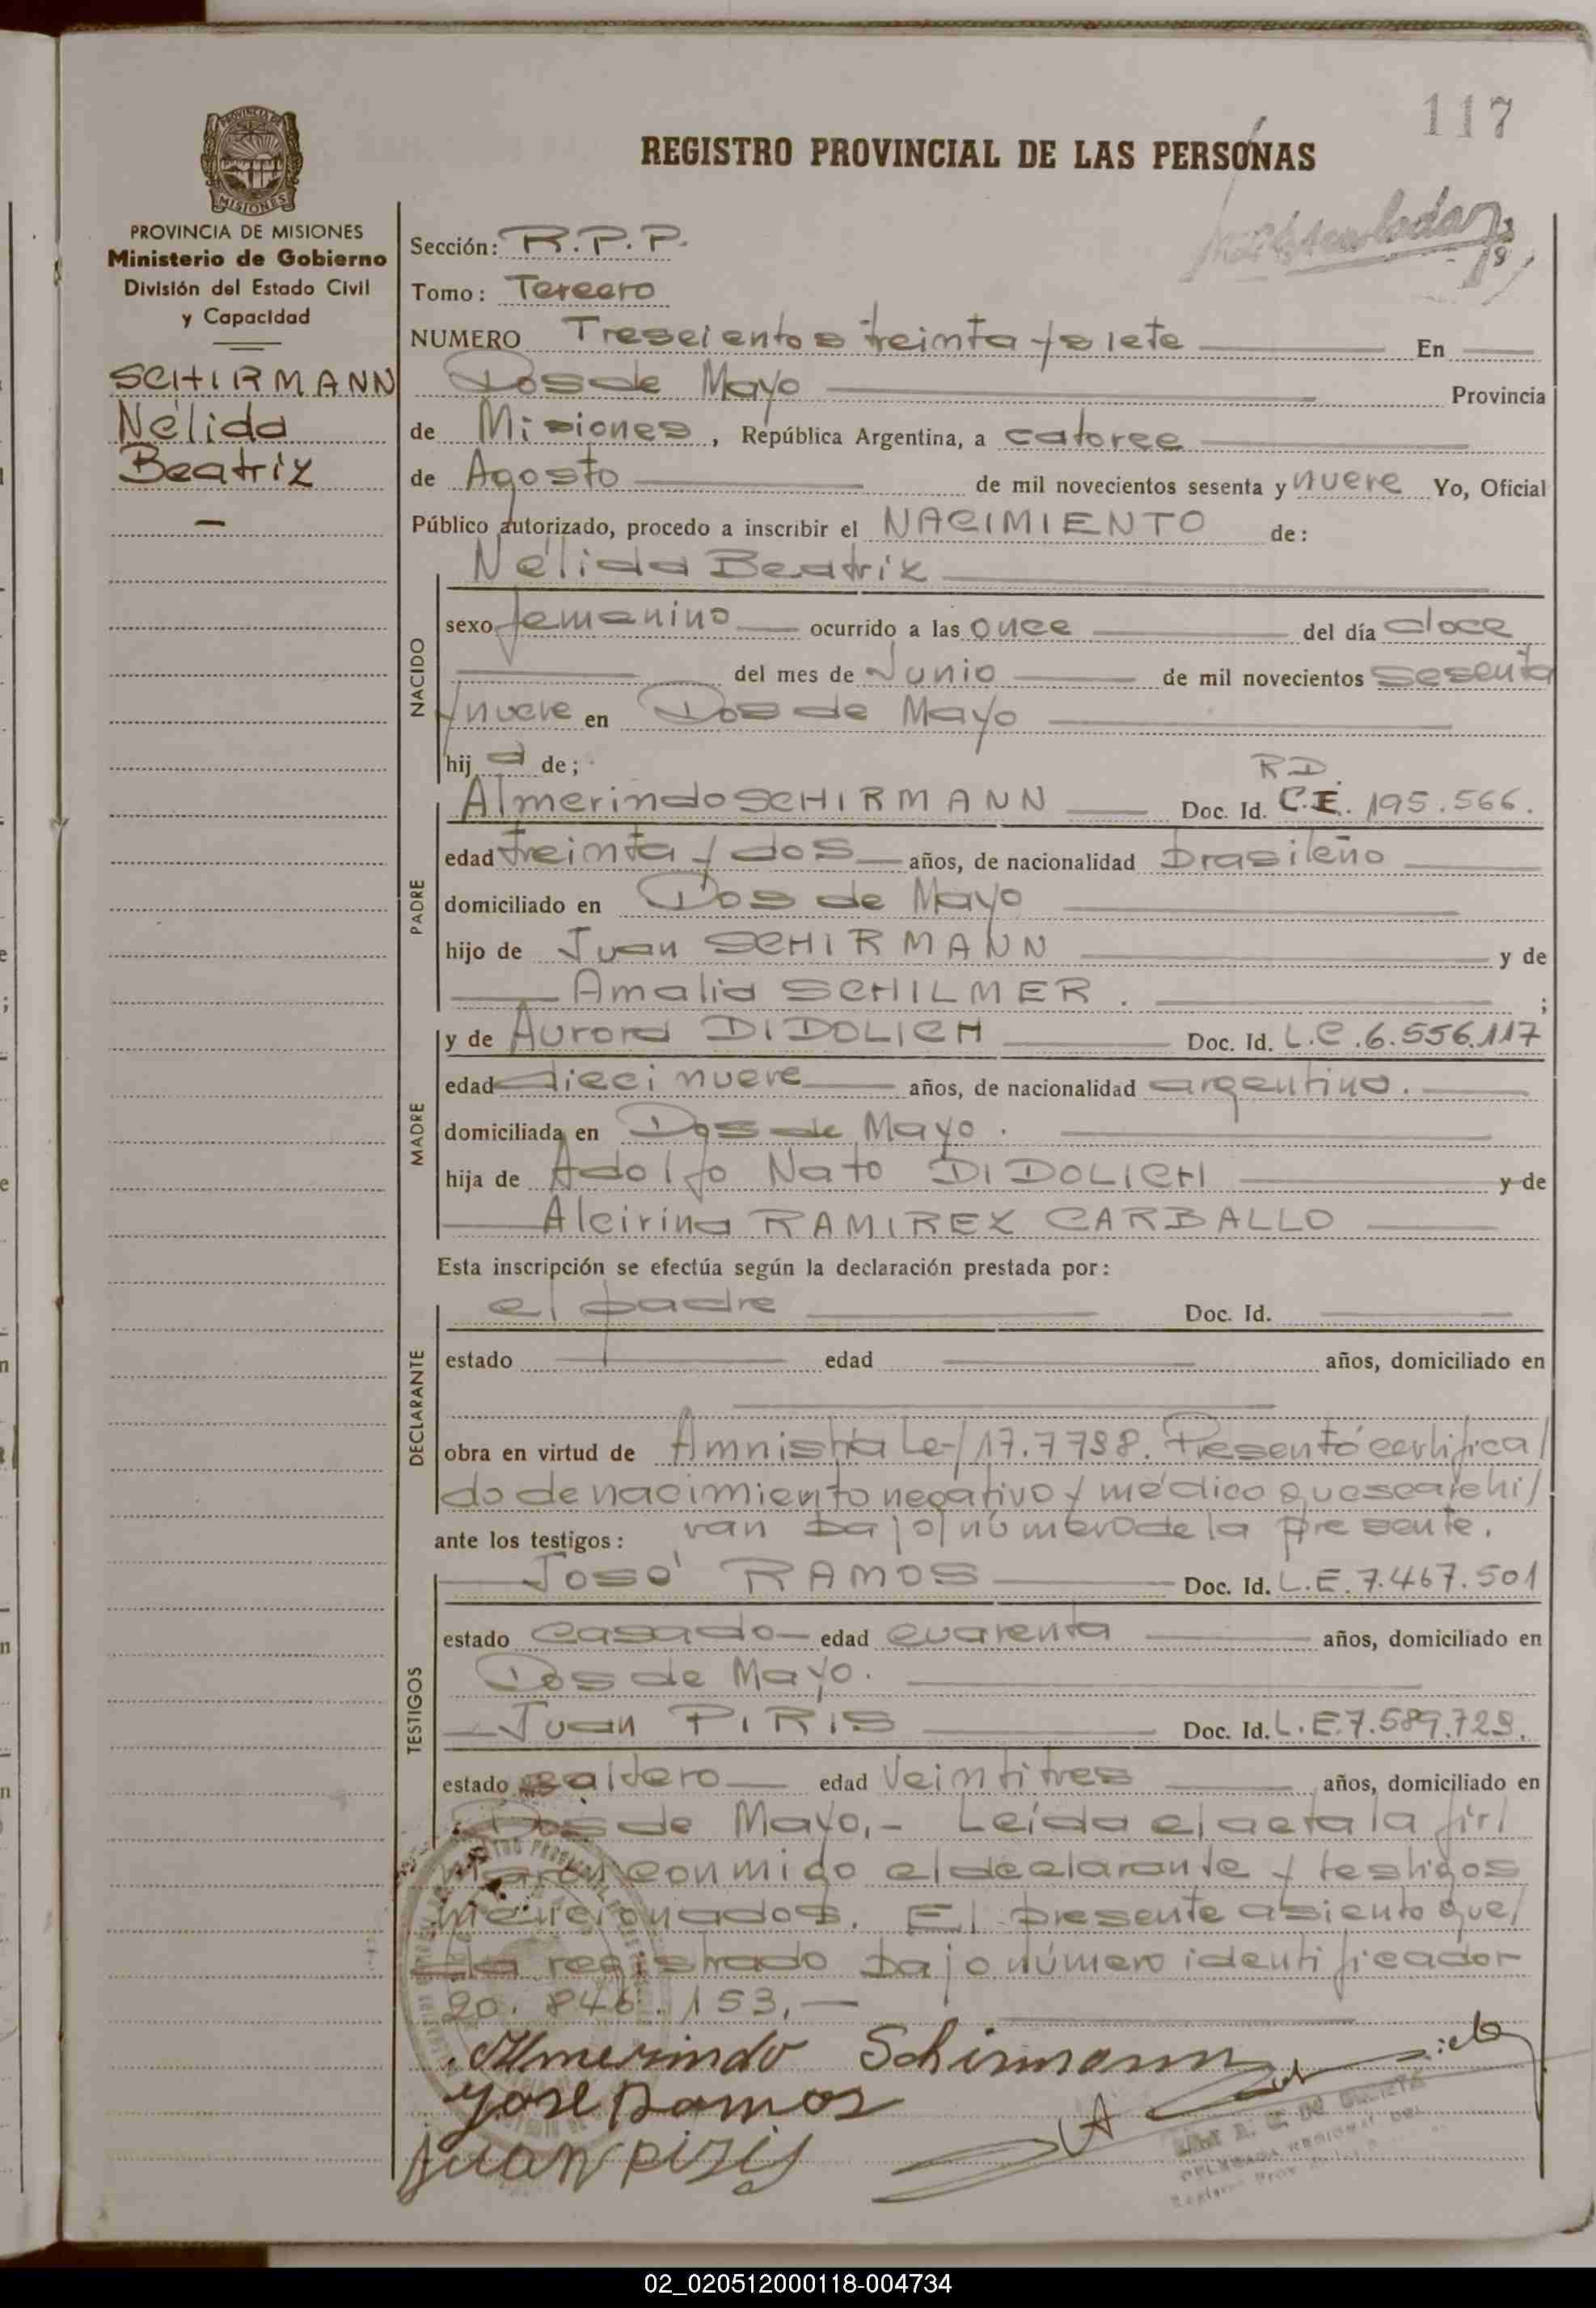 117
REGISTRO PROVINCIAL DE LAS PERSONAS
PROVINCIA DE MISIONES
Ministerio de Gobierno
División del Estado Civil
y Capacidad
SCHIRMANN
Nélida
Beatriz
Sección: R.P.P.
Tomo: Tercero
NUMERO Trescientos treinta y siete En
Dos de Mayo Provincia
de Misiones, República Argentina, a catorce
de Agosto de mil novecientos sesenta y nueve Yo, Oficial
Público autorizado, procedo a inscribir el NACIMIENTO de:
Nélida Beatriz
NACIDO
sexo femenino ocurrido a las once del día doce
del mes de Junio de mil novecientos sesenta
y nueve en Dos de Mayo
hij a de;
R.D.
PADRE
Almerindo SCHIRMANN Doc. Id. C.I. 195.566.
edad treinta y dos años, de nacionalidad brasileño
domiciliado en Dos de Mayo
hijo de Juan SCHIRMANN y de
Amalia SCHILMER. ;
MADRE
y de Aurora DIDOLICH Doc. Id. L.C. 6.556.117
edad diecinueve años, de nacionalidad argentina.
domiciliada en Dos de Mayo.
hija de Adolfo Nato DIDOLICH y de
Alcirina RAMIREZ CARBALLO
Esta inscripción se efectúa según la declaración prestada por:
DECLARANTE
el padre Doc. Id.
estado edad años, domiciliado en
obra en virtud de Amnistía Ley 17.7798. Presentó certifica/
do de nacimiento negativo y médico que se archi/
ante los testigos: van bajo número de la presente.
TESTIGOS
José RAMOS Doc. Id. L.E. 7.467.501
estado casado edad cuarenta años, domiciliado en
Dos de Mayo.
Juan PIRIS Doc. Id. L.E. 7.589.729.
estado soltero edad veintitres años, domiciliado en
Dos de Mayo,- Leída el acta la fir/
maron conmigo el declarante y testigos
mencionados. El presente asiento que/
da registrado bajo número identificador
20.846.153,-
Almerindo Schirmann
Jose Ramos
Juan piris
02_020512000118-004734